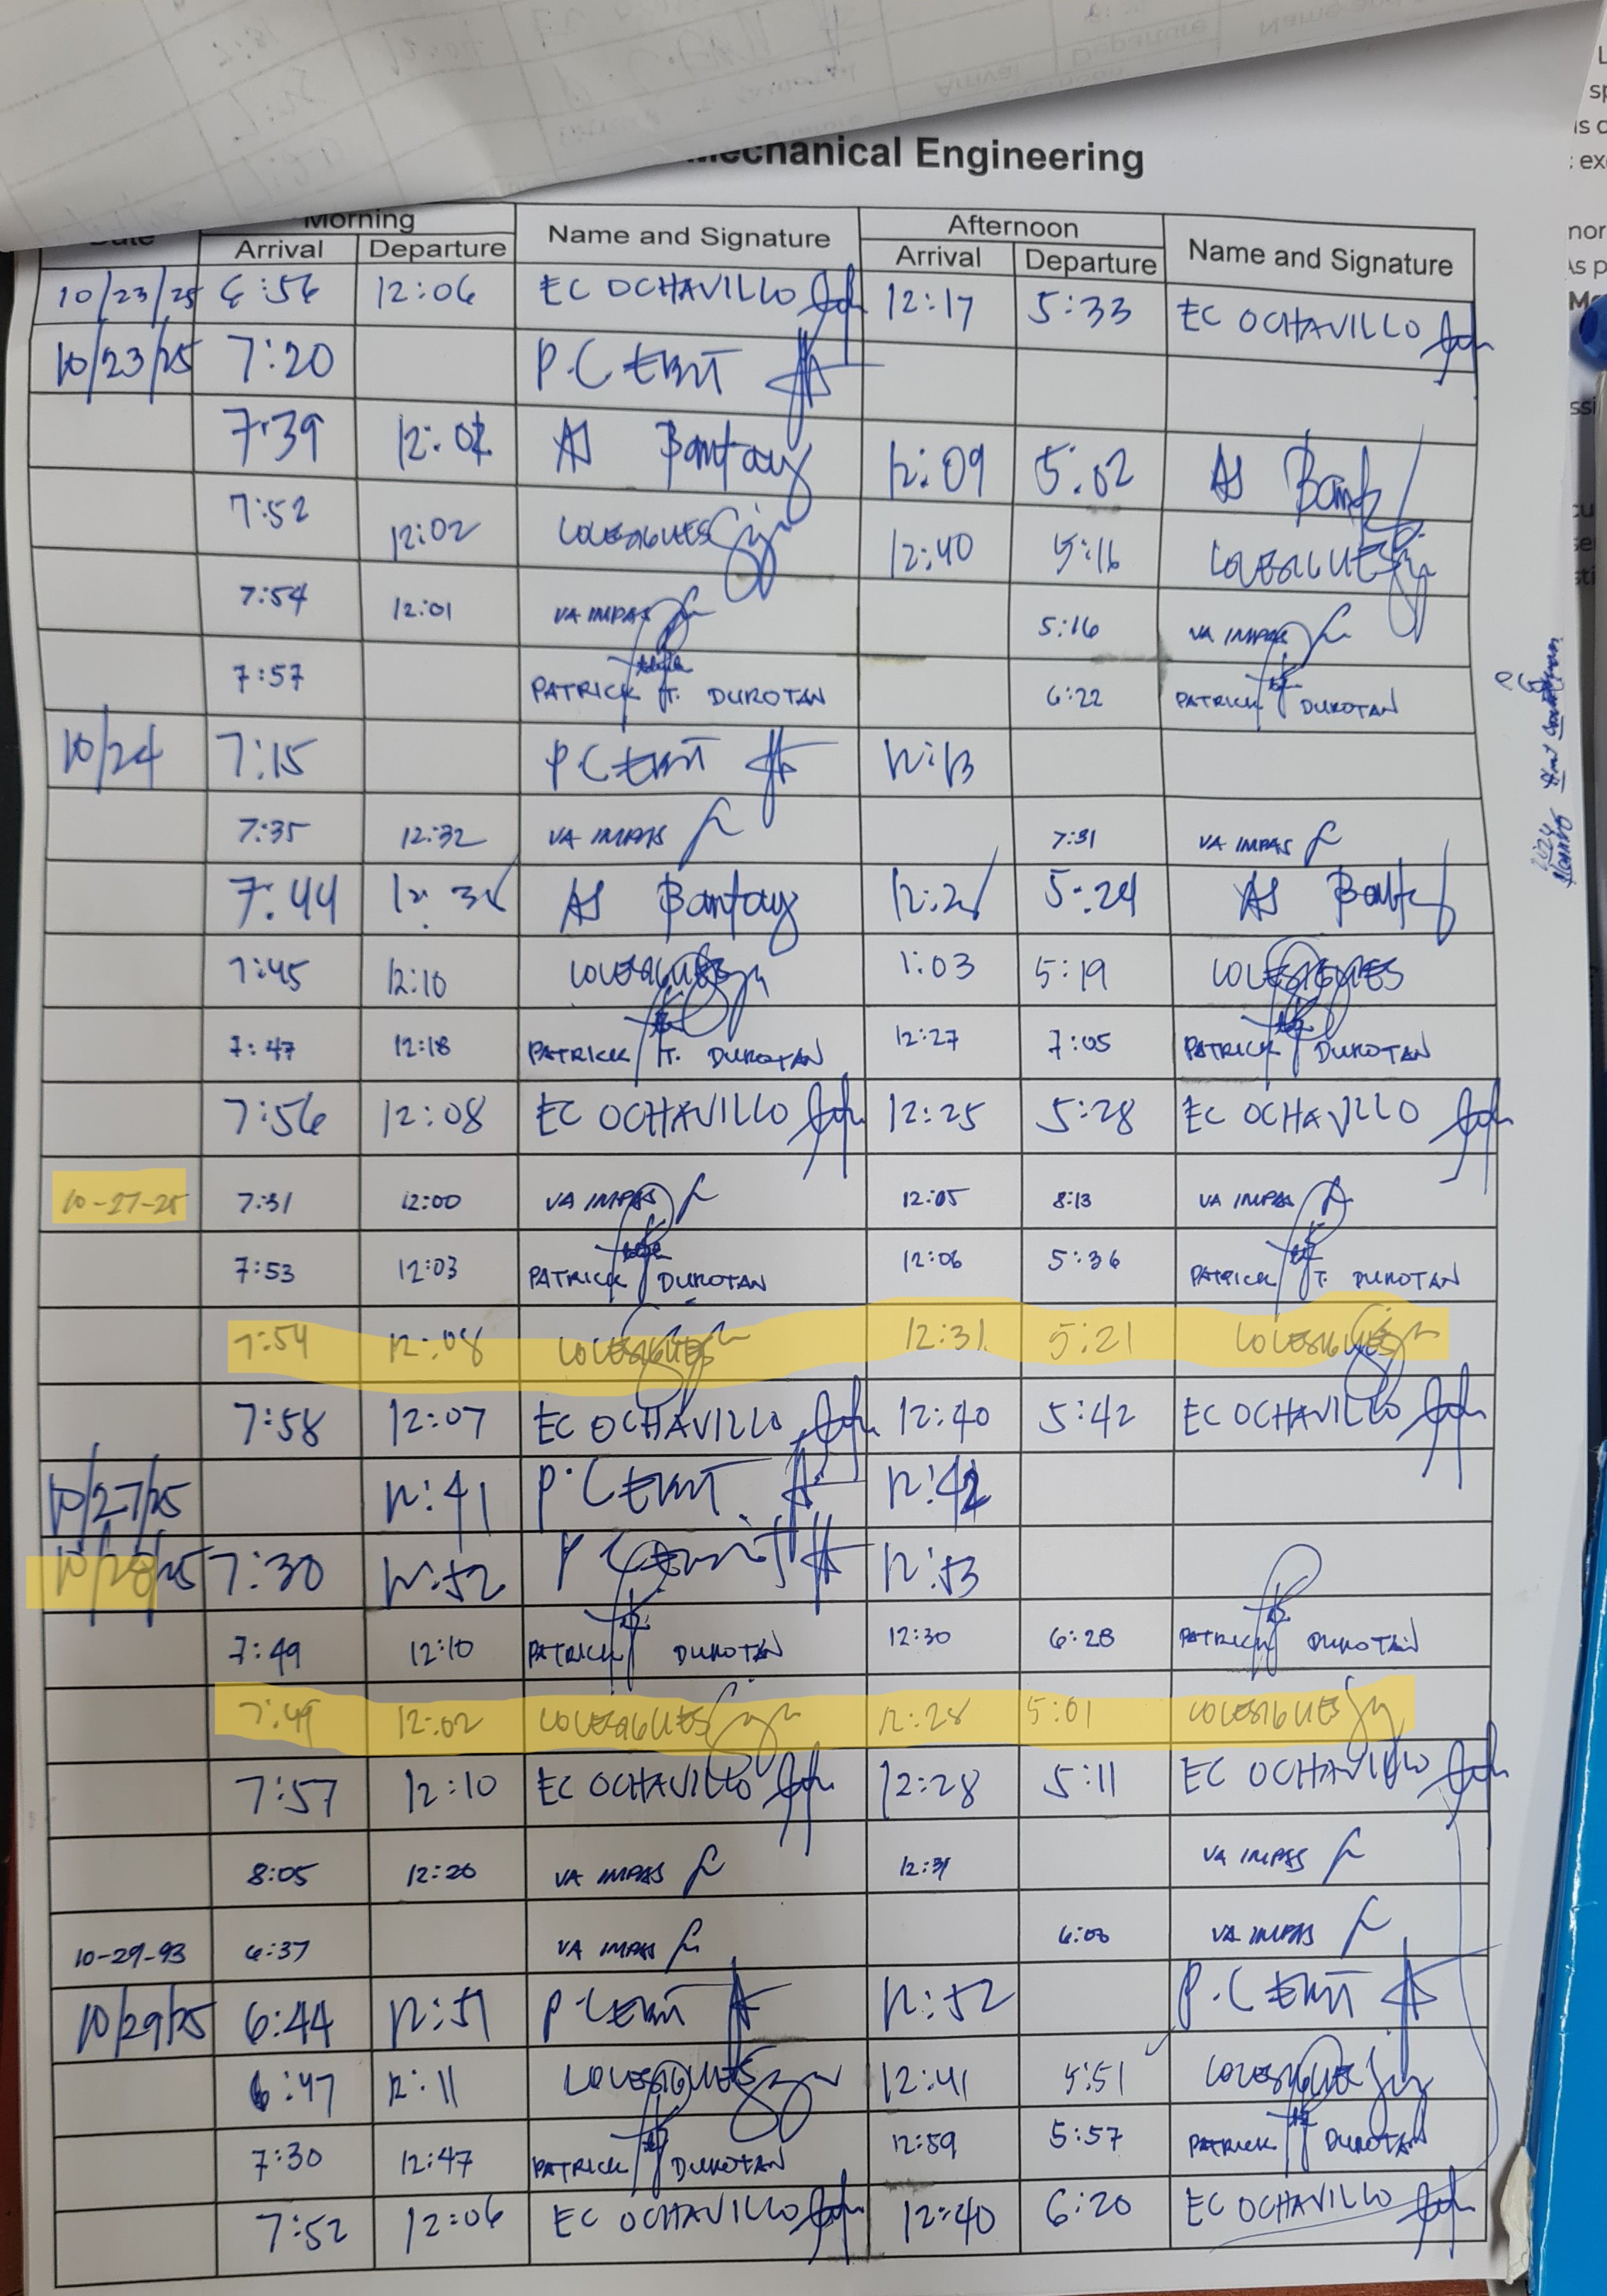 Mechanical Engineering
Date Morning Name and Signature Afternoon Name and Signature
Arrival Departure Arrival Departure
10/23/25 6:56 12:06 EC OCHAVILLO 12:17 5:33 EC OCHAVILLO
10/23/25 7:20 P.C ERMT
7:39 12:02 AS Bantay 12:09 5:02 AS Bant
7:52 12:02 LOVESIGUES 12:40 5:16 LOVESIGUES
7:54 12:01 VA IMPAS 5:16 VA IMPAS
7:57 PATRICK T. DUROTAN 6:22 PATRICK DUROTAN
10/24 7:15 P C ERMT 12:13
7:35 12:32 VA IMPAS 7:31 VA IMPAS
7:44 AS Bantay 5:24 AS
7:45 12:10 LOVESIGUES 1:03 5:19 LOVESIGUES
7:47 12:18 PATRICK T. DUROTAN 12:27 7:05 PATRICK DUROTAN
7:56 12:08 EC OCHAVILLO 12:25 5:28 EC OCHAVILLO
10-27-25 7:31 12:00 VA IMPAS 12:05 8:13 VA IMPAS
7:53 12:03 PATRICK DUROTAN 12:06 5:36 PATRICK T. DUROTAN
7:54 12:08 LOVESIGUES 12:31 5:21 LOVESIGUES
7:58 12:07 EC OCHAVILLO 12:40 5:42 EC OCHAVILLO
10/27/25 12:41 P.C ERMT 12:42
10/28/25 7:30 12:52 P C ERMT 12:53
7:49 12:10 PATRICK DUROTAN 12:30 6:28 PATRICK DUROTAN
7:49 12:02 LOVESIGUES 12:28 5:01 LOVESIGUES
7:57 12:10 EC OCHAVILLO 12:28 5:11 EC OCHAVILLO
8:05 12:20 VA IMPAS 12:31 VA IMPAS
10-29-93 6:37 VA IMPAS 6:00 VA IMPAS
10/29/25 6:44 12:51 P.C ERMT 12:52 P.C ERMT
6:47 12:11 LOVESIGUES 12:41 5:51 LOVESIGUES
7:30 12:47 PATRICK DUROTAN 12:59 5:57 PATRICK DUROTAN
7:52 12:06 EC OCHAVILLO 12:40 6:20 EC OCHAVILLO